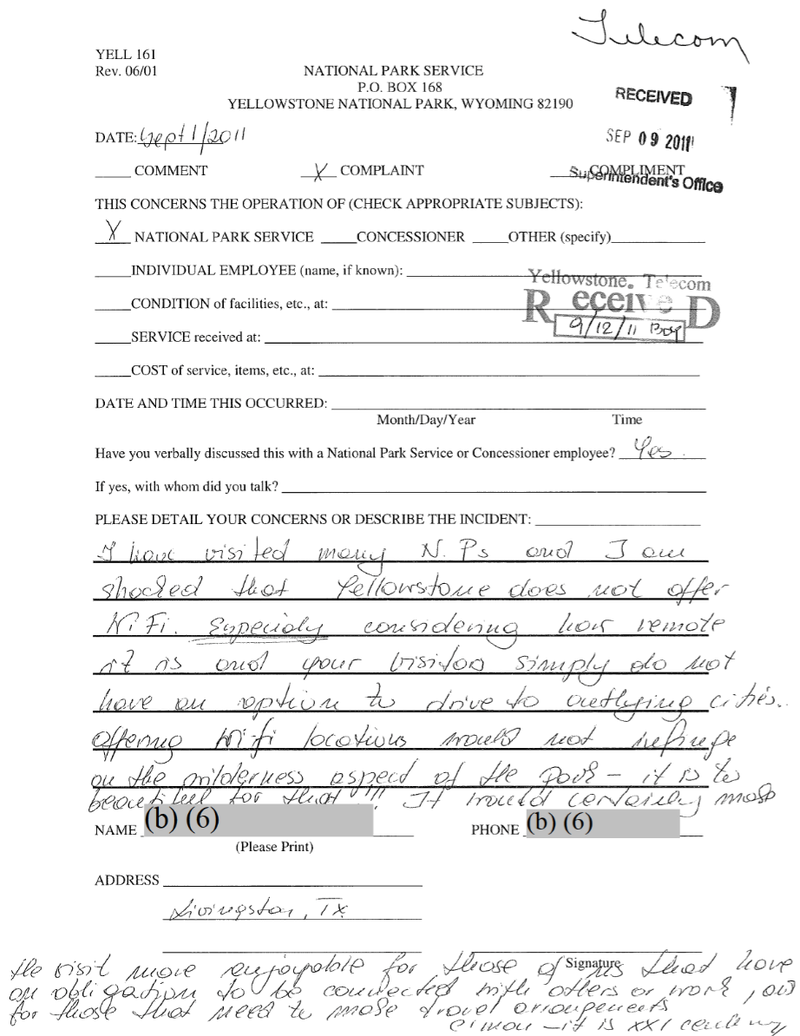 Telecom
YELL 161
Rev. 06/01
NATIONAL PARK SERVICE
P.O. BOX 168
YELLOWSTONE NATIONAL PARK, WYOMING 82190
RECEIVED
SEP 09 2011
Superintendent's Office
DATE: Sept 1/2011
____ COMMENT X COMPLAINT ____ COMPLIMENT
THIS CONCERNS THE OPERATION OF (CHECK APPROPRIATE SUBJECTS):
X NATIONAL PARK SERVICE ____CONCESSIONER ____OTHER (specify)____
____INDIVIDUAL EMPLOYEE (name, if known): ____
Yellowstone Telecom
ReceiveD
9/12/11
____CONDITION of facilities, etc., at: ____
____SERVICE received at: ____
____COST of service, items, etc., at: ____
DATE AND TIME THIS OCCURRED: ____
Month/Day/Year Time
Have you verbally discussed this with a National Park Service or Concessioner employee? Yes
If yes, with whom did you talk? ____
PLEASE DETAIL YOUR CONCERNS OR DESCRIBE THE INCIDENT: ____
I have visited many N.Ps and I am
shocked that Yellowstone does not offer
WiFi. Especialy considering how remote
it is and your visitors simply do not
have an option to drive to outlying cities.
offering Wifi locations would not infringe
on the wilderness aspect of the park - it is to
beautiful for that!!! It would certainly make
NAME (b) (6) PHONE (b) (6)
(Please Print)
ADDRESS ____
Livingston, TX
Signature
the visit more enjoyable for those of us that have
an obligation to be connected with others or work, or
for those that need to make travel arrangements
c'mon - it is XXI century